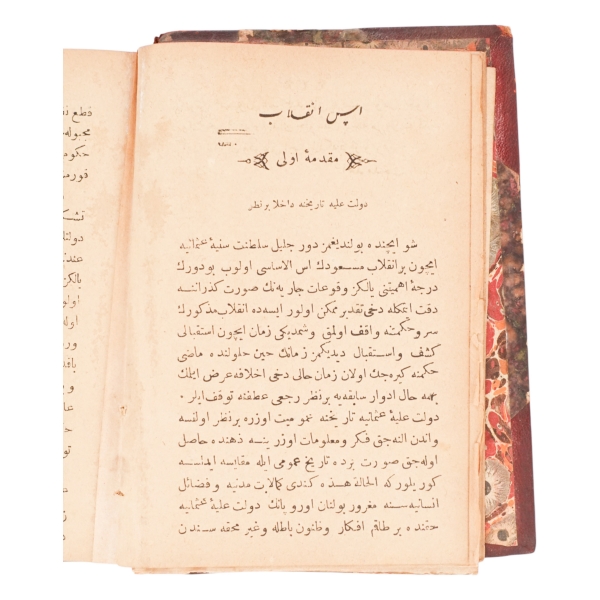 اس انقلاب
مقدمهٔ اولی
دولت علیه تاریخنه داخلا برنظر
شو ایچنده بولندیغمز دور جلیل سلطنت سنیهٔ عثمانیه
ایچون برانقلاب مسعودك اس الاساسی اولوب بودورك
درجهٔ اهمیتنی یالكز وقوعات جاریه‌نك صورت كذراننه
دقت ایتمكله دخی تقدیر ممكن اولور ایسه‌ده انقلاب مذكورك
سر و حكمتنه واقف اولمق و شمدیكی زمان ایچون استقبالی
كشف و استقبال دیدیكمز زمانك حین حلولنده ماضی
حكمنه كیره‌جك اولان زمان حالی دخی اخلافه عرض ایلك
بهمه حال ادوار سابقه‌یه برنظر رجعی عطفنه توقف ایلر.
دولت علیهٔ عثمانیه تاریخنه عمومیت اوزره برنظر اولنسه
واندن النه‌جق فكر و معلومات اوزرینه ذهنده حاصل
اوله‌جق صورت برده تاریخ عمومی ایله مقایسه ایدلسه
كوریلوركه الحالة هذه كندی كمالات مدنیه و فضائل
انسانیه‌سنه مغرور بولنان اوروپانك دولت علیهٔ عثمانیه
حقنده بر طاقم افكار و ظنون باطله و غیر محقه‌سندن
قطع
مجبوله
حكو
تشك
دولتا
عند
یالكز
اولو
اوله
و